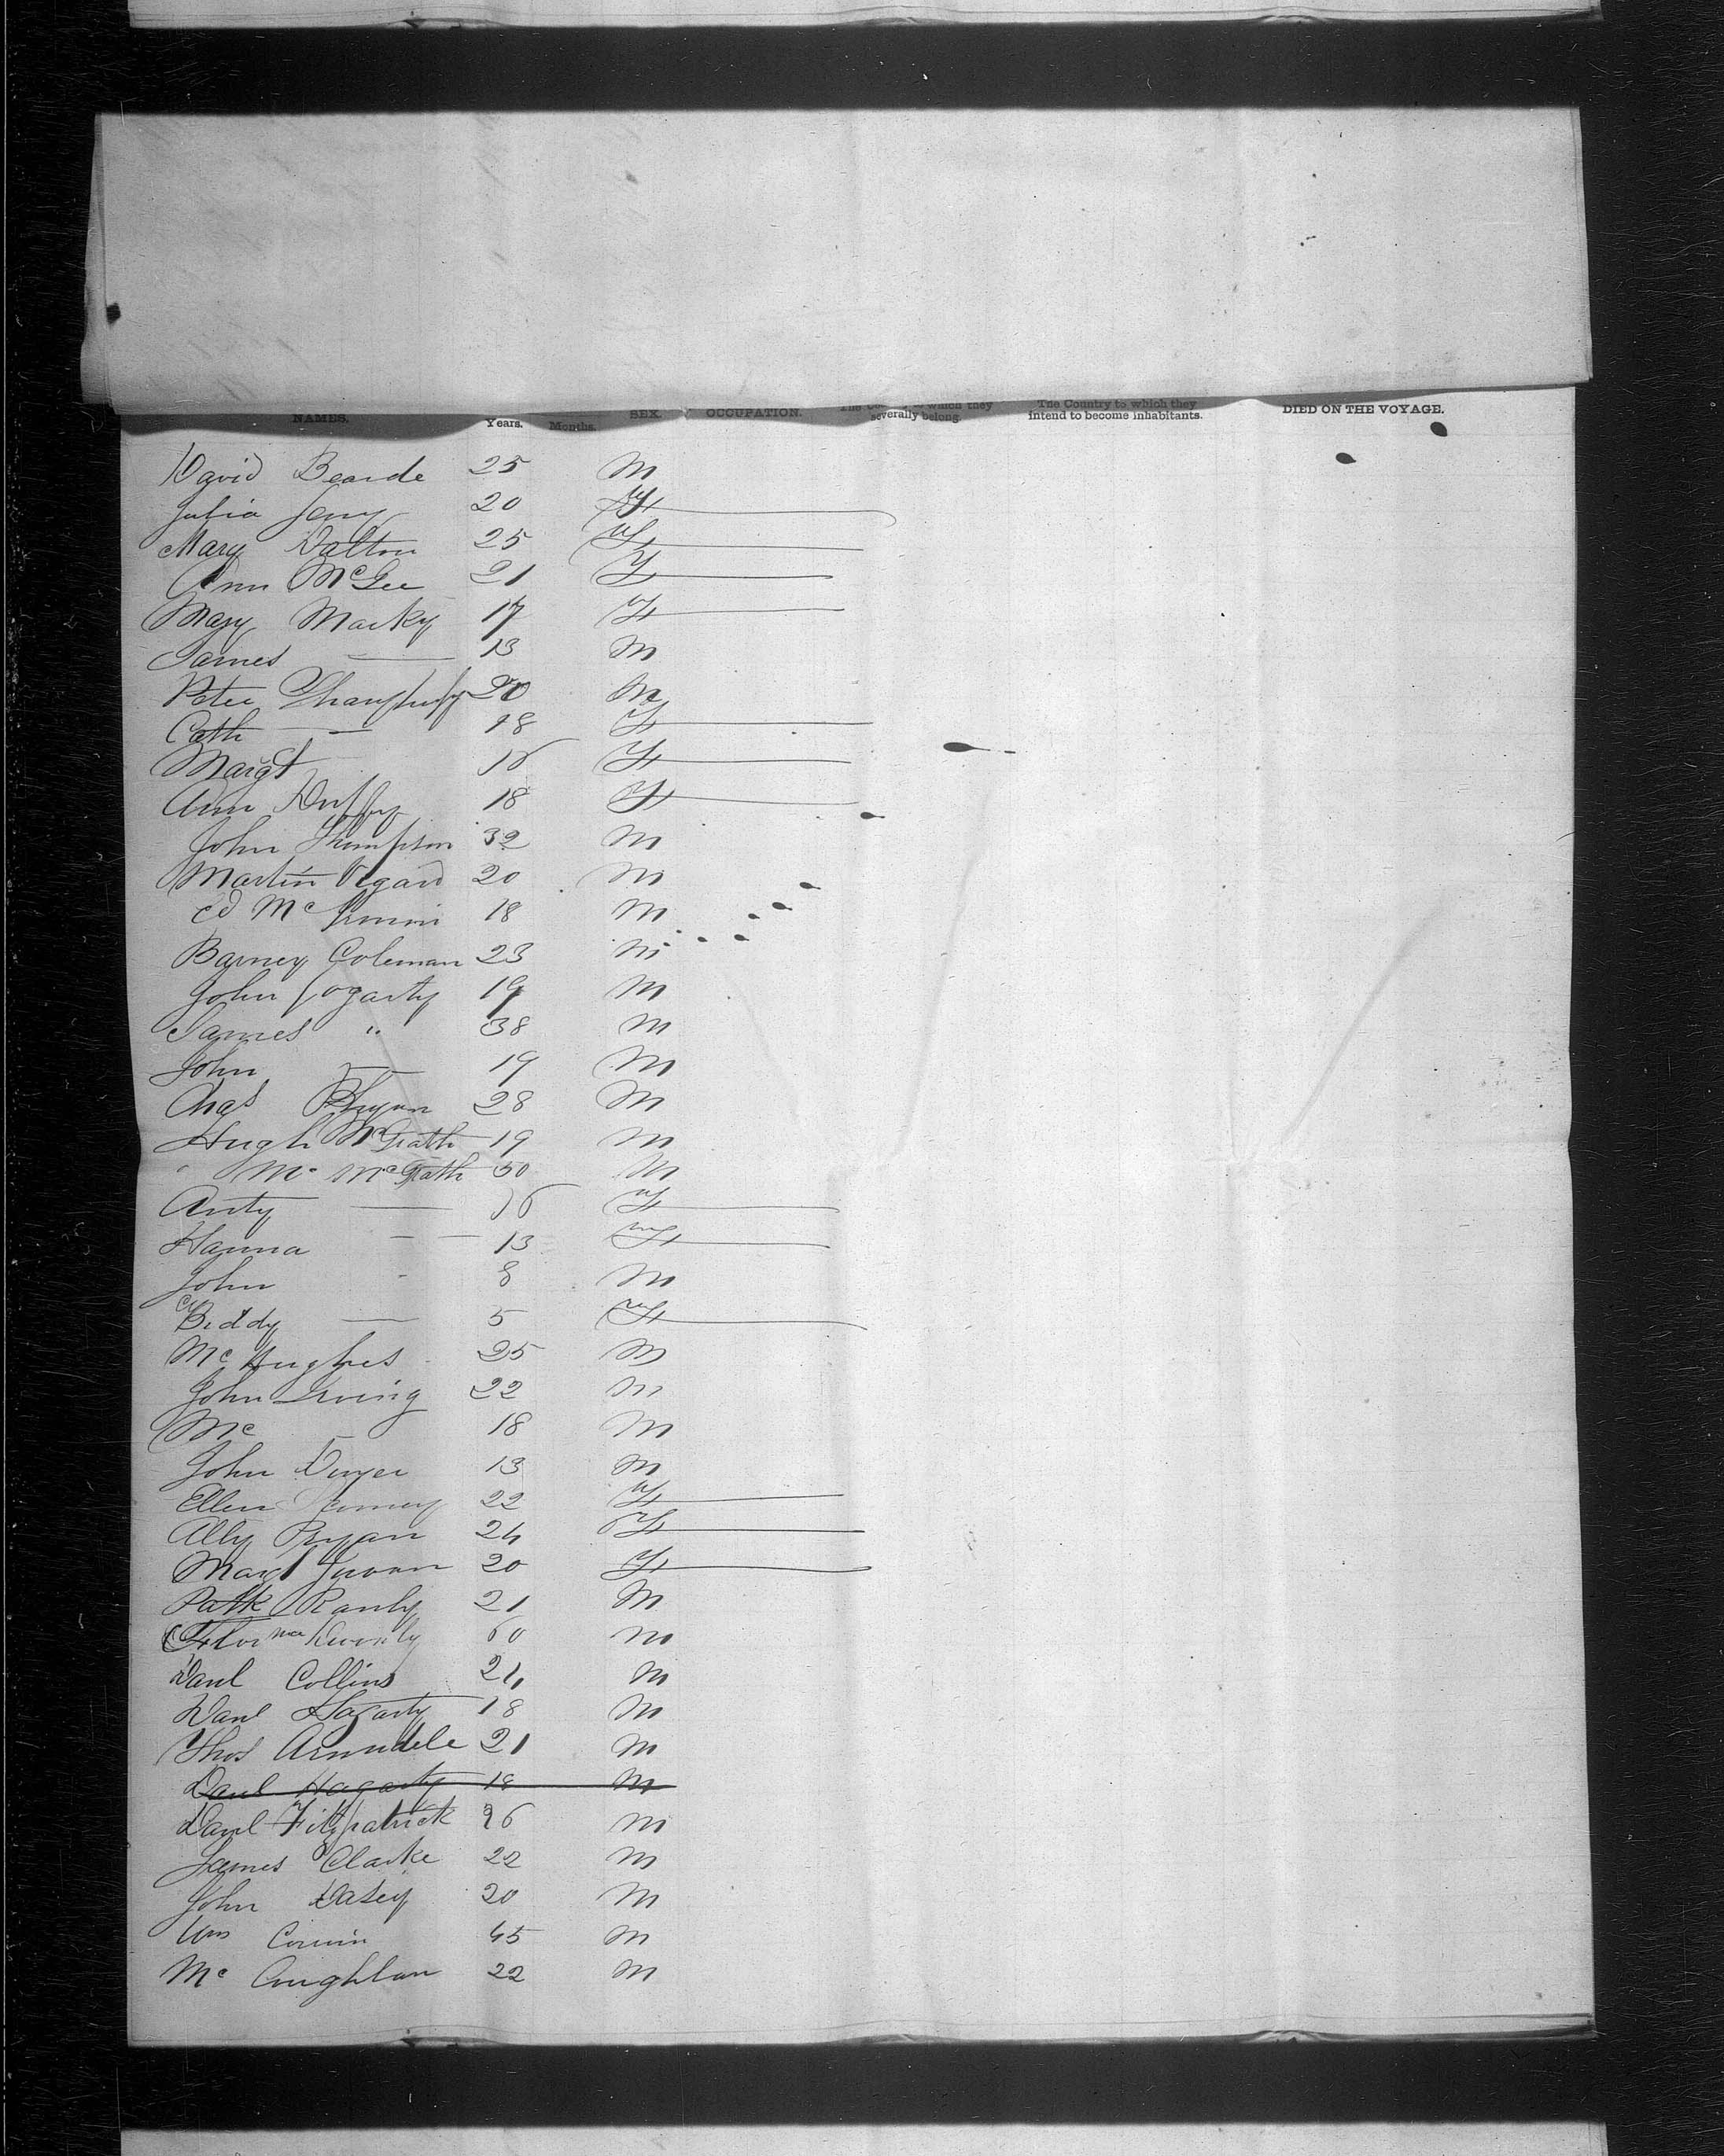 NAMES. Years. Months. SEX. OCCUPATION. The Country to which they severally belong. The Country to which they intend to become inhabitants. DIED ON THE VOYAGE.
David Bearde 25 M
Julia 20 F
Mary Dalton 25 F
Ann McGee 21 F
Mary Marky 17 F
James — 13 M
Peter 20 M
Cath — 18 F
Margt 16 F
Ann Duffy 18 F
John Thompson 32 M
Martin 20 M
Ed Mc 18 M
Barney Coleman 23 M
John Fogarty 19 M
James " 38 M
John — 19 M
Chas Bryan 28 M
Hugh McGrath 19 M
Mc McGrath 50 M
Anty — 16 F
Hanna — — 13 F
John - 8 M
Biddy — 5 F
Mc Hughes 25 M
John Irving 22 M
Mc 18 M
John Dwyer 13 M
Ellen 22 F
Ally Bryan 24 F
Margt 20 F
Patk Ranly 21 M
60 M
Danl Collins 24 M
Danl Hagarty 18 M
Thos Arundele 21 M
Danl Hagarty 18 M
Danl Fitzpatrick 26 M
James Clarke 22 M
John Dasey 20 M
Wm Corwin 45 M
Mc Coughlan 22 M